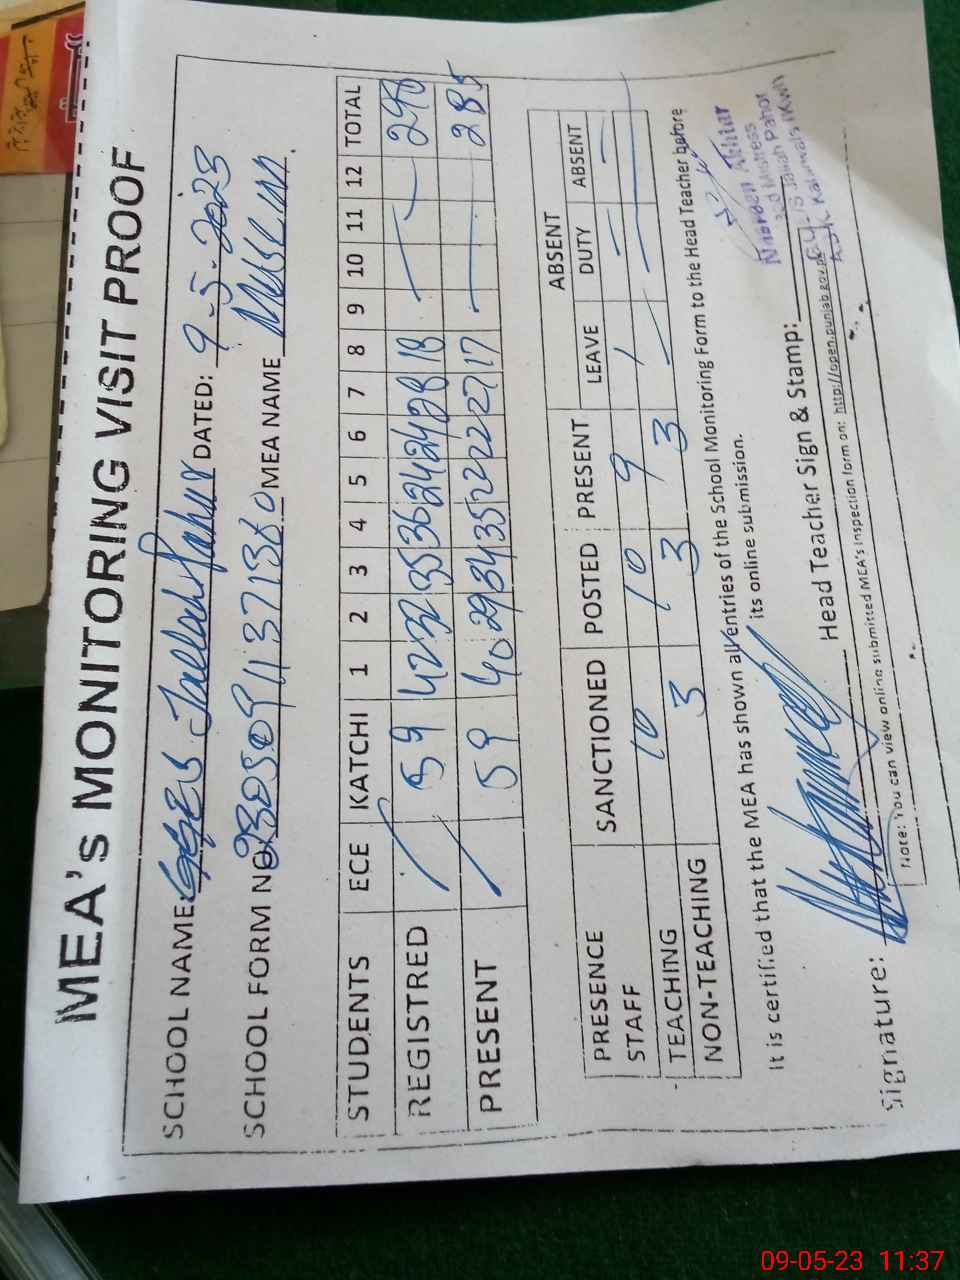 MEA's MONITORING VISIT PROOF
SCHOOL NAME GGES Jallah Pahur DATED: 9-5-2023
SCHOOL FORM NO MEA NAME
STUDENTS ECE KATCHI 1 2 3 4 5 6 7 8 9 10 11 12 TOTAL
REGISTRED / 59 42 32 35 36 24 24 28 18 — — 298
PRESENT / 59 40 29 34 35 22 22 27 17 — — 285
ABSENT
PRESENCE SANCTIONED POSTED PRESENT LEAVE DUTY ABSENT
STAFF 10 10 9 / — —
TEACHING 3 3 3
NON-TEACHING
It is certified that the MEA has shown all entries of the School Monitoring Form to the Head Teacher before
its online submission.
Nasreen Akhtar
Head Mistress
Signature: Head Teacher Sign & Stamp:
Note: You can view online submitted MEA's Inspection form on: http://open.punjab.gov.pk
09-05-23 11:37